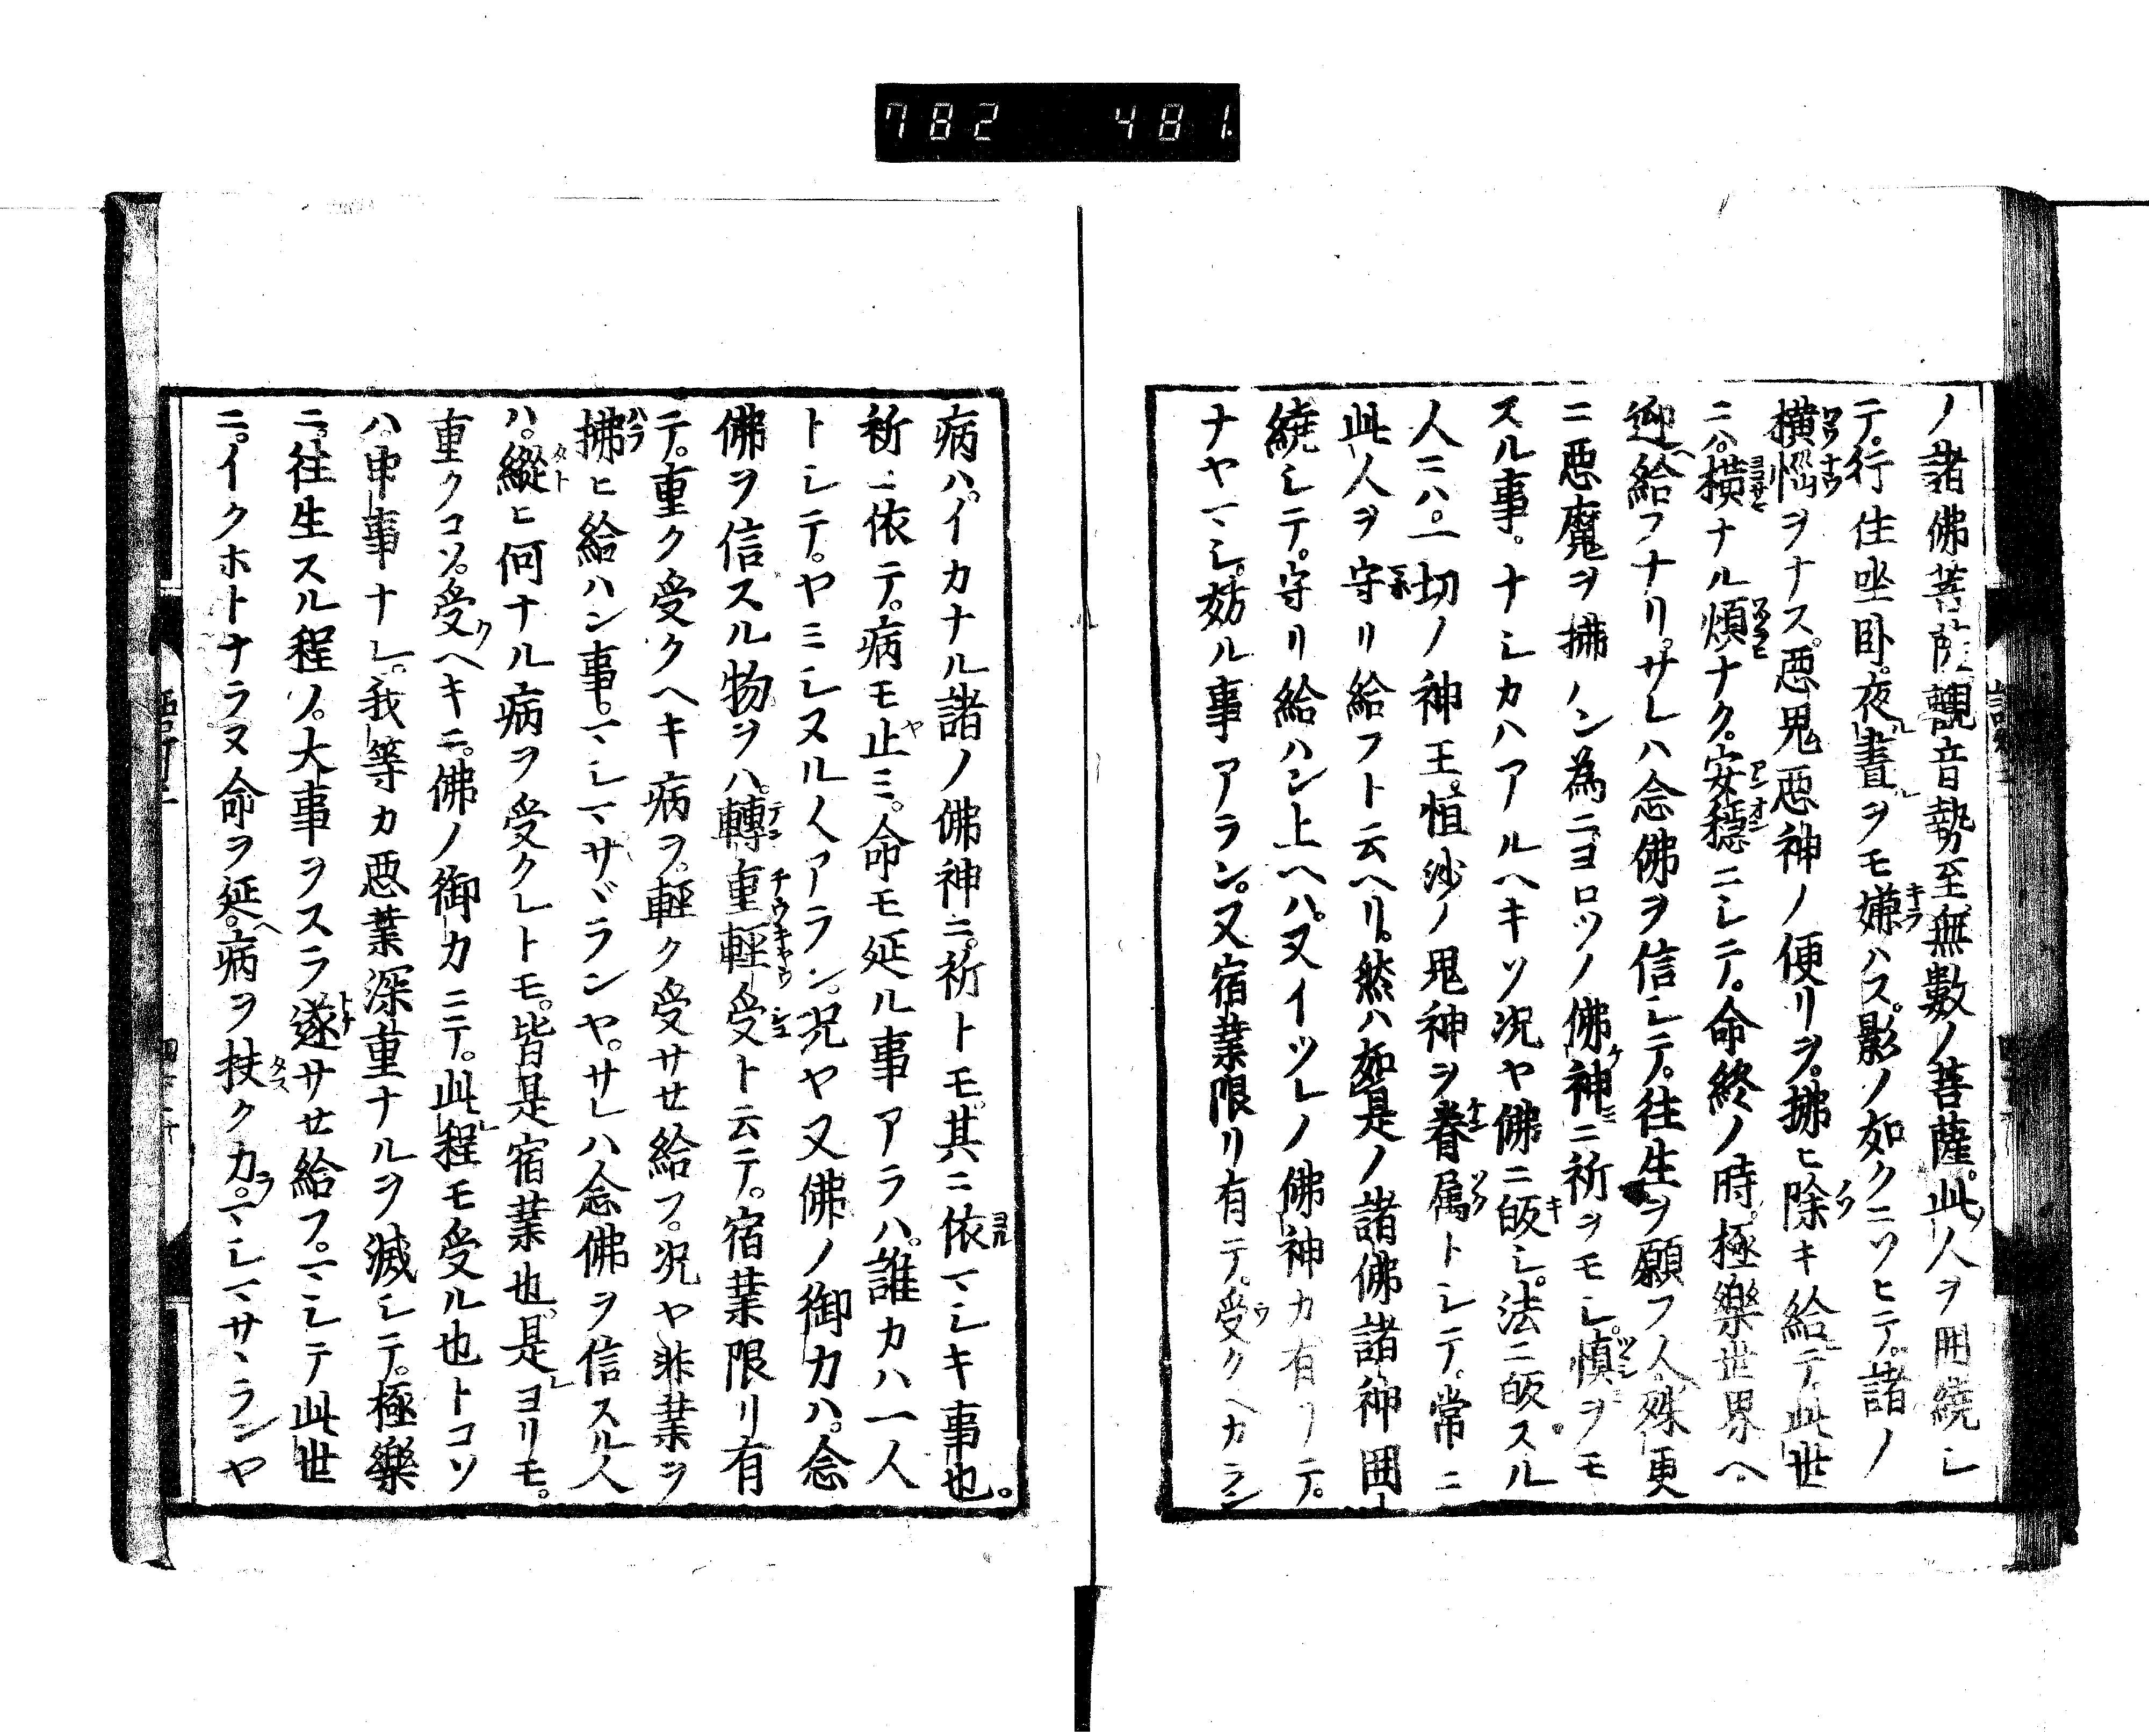 782 481
ノ諸佛菩薩觀音勢至無數ノ菩薩。此人ヲ囲繞シ
テ。行住坐臥。夜晝ヲモ嫌ハス。影ノ如クニソヒテ。諸ノ
横惱ヲナス。惡鬼惡神ノ便リヲ。拂ヒ除キ給テ。此世
ニハ。横ナル煩ナク。安穩ニシテ。命終ノ時。極樂世界ヘ
迎給フナリ。サレハ念佛ヲ信シテ。往生ヲ願フ人。殊更
ニ惡魔ヲ拂ノン為ニ。ヨロツノ佛神ニ祈ヲモシ。慎ヲモ
スル事。ナシカハアルヘキソ況ヤ佛ニ皈シ。法ニ皈スル
人ニハ。一切ノ神王。恒沙ノ鬼神ヲ眷属トシテ。常ニ
此人ヲ守リ給フト云ヘリ。然ハ如是ノ諸佛諸神囲
繞シテ。守リ給ハン上ヘハ。又イツレノ佛神カ有リテ。
ナヤマシ。妨ル事アラン。又宿業限リ有テ。受クヘカラン
病ハ。イカナル諸ノ佛神ニ。祈トモ。其ニ依マシキ事也。
祈ニ依テ。病モ止ミ。命モ延ル事アラハ。誰カハ一人
トシテ。ヤミシヌル人アラン。况ヤ又佛ノ御力ハ。念
佛ヲ信スル物ヲハ。轉重輕受ト云テ。宿業限リ有
テ。重ク受クヘキ病ヲ。輕ク受サセ給フ。况ヤ非業ヲ
拂ヒ給ハン事。マシマサヾランヤ。サレハ念佛ヲ信スル人
ハ。縱ヒ何ナル病ヲ受クレトモ。皆是宿業也。是ヨリモ。
重クコソ。受ヘキニ。佛ノ御力ニテ。此程モ受ル也トコソ
ハ。申事ナレ。我等カ惡業深重ナルヲ滅シテ。極樂
ニ。往生スル程ノ。大事ヲスラ遂サセ給フ。マシテ此世
ニ。イクホトナラヌ命ヲ延。病ヲ扶ク力。マシマサヽランヤ